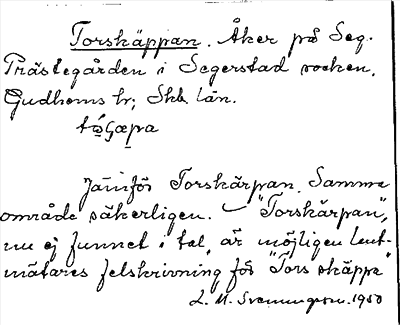 Torskäppan. Åker på Seg.
Prästegården i Segerstad socken,
Gudhems hr; Skb. län.
Jämför Torskärpan. Samma
område säkerligen. – "Torskärpan",
nu ej funnet i tal, är möjligen lant-
mätares felskrivning för "Tors skäppa"
L. M. Svenungsson. 1950